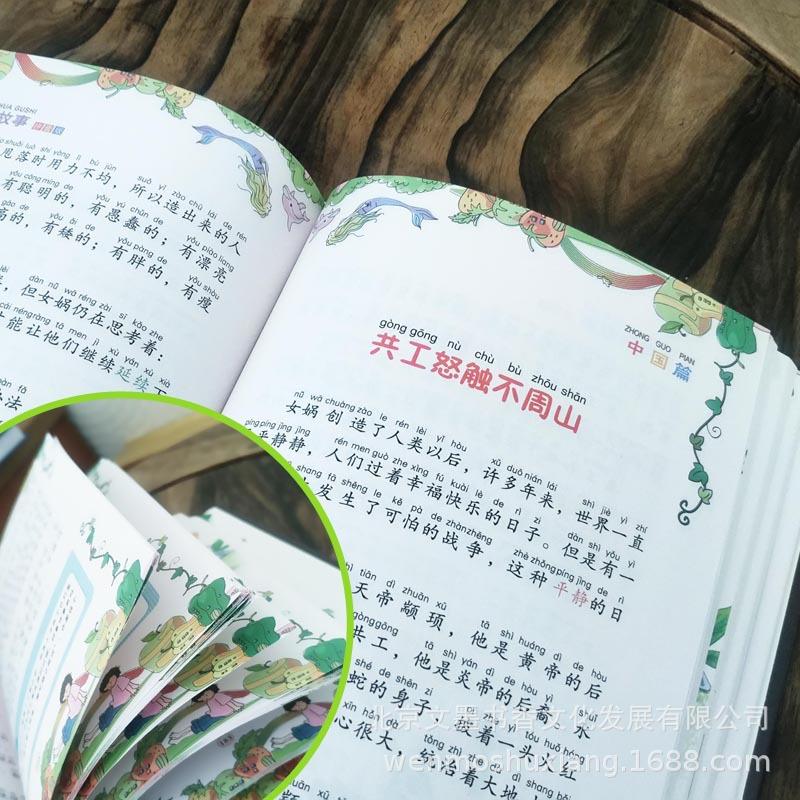 HUA GUSHI
故事
shuǎi luò shí yòng lì bù jūn
suǒ yǐ zào chū lái de rén
甩落时用力不均，所以造出来的人
yǒu cōng míng de
yǒu yú chǔn de
yǒu piào liang
有聪明的，有愚蠢的；有漂亮
gāo de
yǒu ǎi de
yǒu pàng de
yǒu shòu
高的，有矮的；有胖的，有瘦
dàn nǚ wā réng zài sī kǎo zhe
但女娲仍在思考着：
cái néng ràng tā men jì xù yán xù xià
才能让他们继续延续下
办法
ZHONG GUO PIAN
中国篇
gòng gōng nù chù bù zhōu shān
共工怒触不周山
nǚ wā chuàng zào le rén lèi yǐ hòu
xǔ duō nián lái
shì jiè yì zhí
女娲创造了人类以后，许多年来，世界一直
píng píng jìng jìng
rén men guò zhe xìng fú kuài lè de rì zi
dàn shì yǒu yì
平平静静，人们过着幸福快乐的日子。但是有一
shang fā shēng le kě pà de zhàn zhēng
zhè zhǒng píng jìng de rì
上发生了可怕的战争，这种平静的日
tiān dì zhuān xū
tā shì huáng dì de hòu
天帝颛顼，他是黄帝的后
gòng gōng
tā shì yán dì de hòu
共工，他是炎帝的后裔。水
shé de shēn zi
蛇的身子，披着一头火红
心很大，统治着大地
颛
北京文墨书香文化发展有限公司
wenmoshuxiang.1688.com